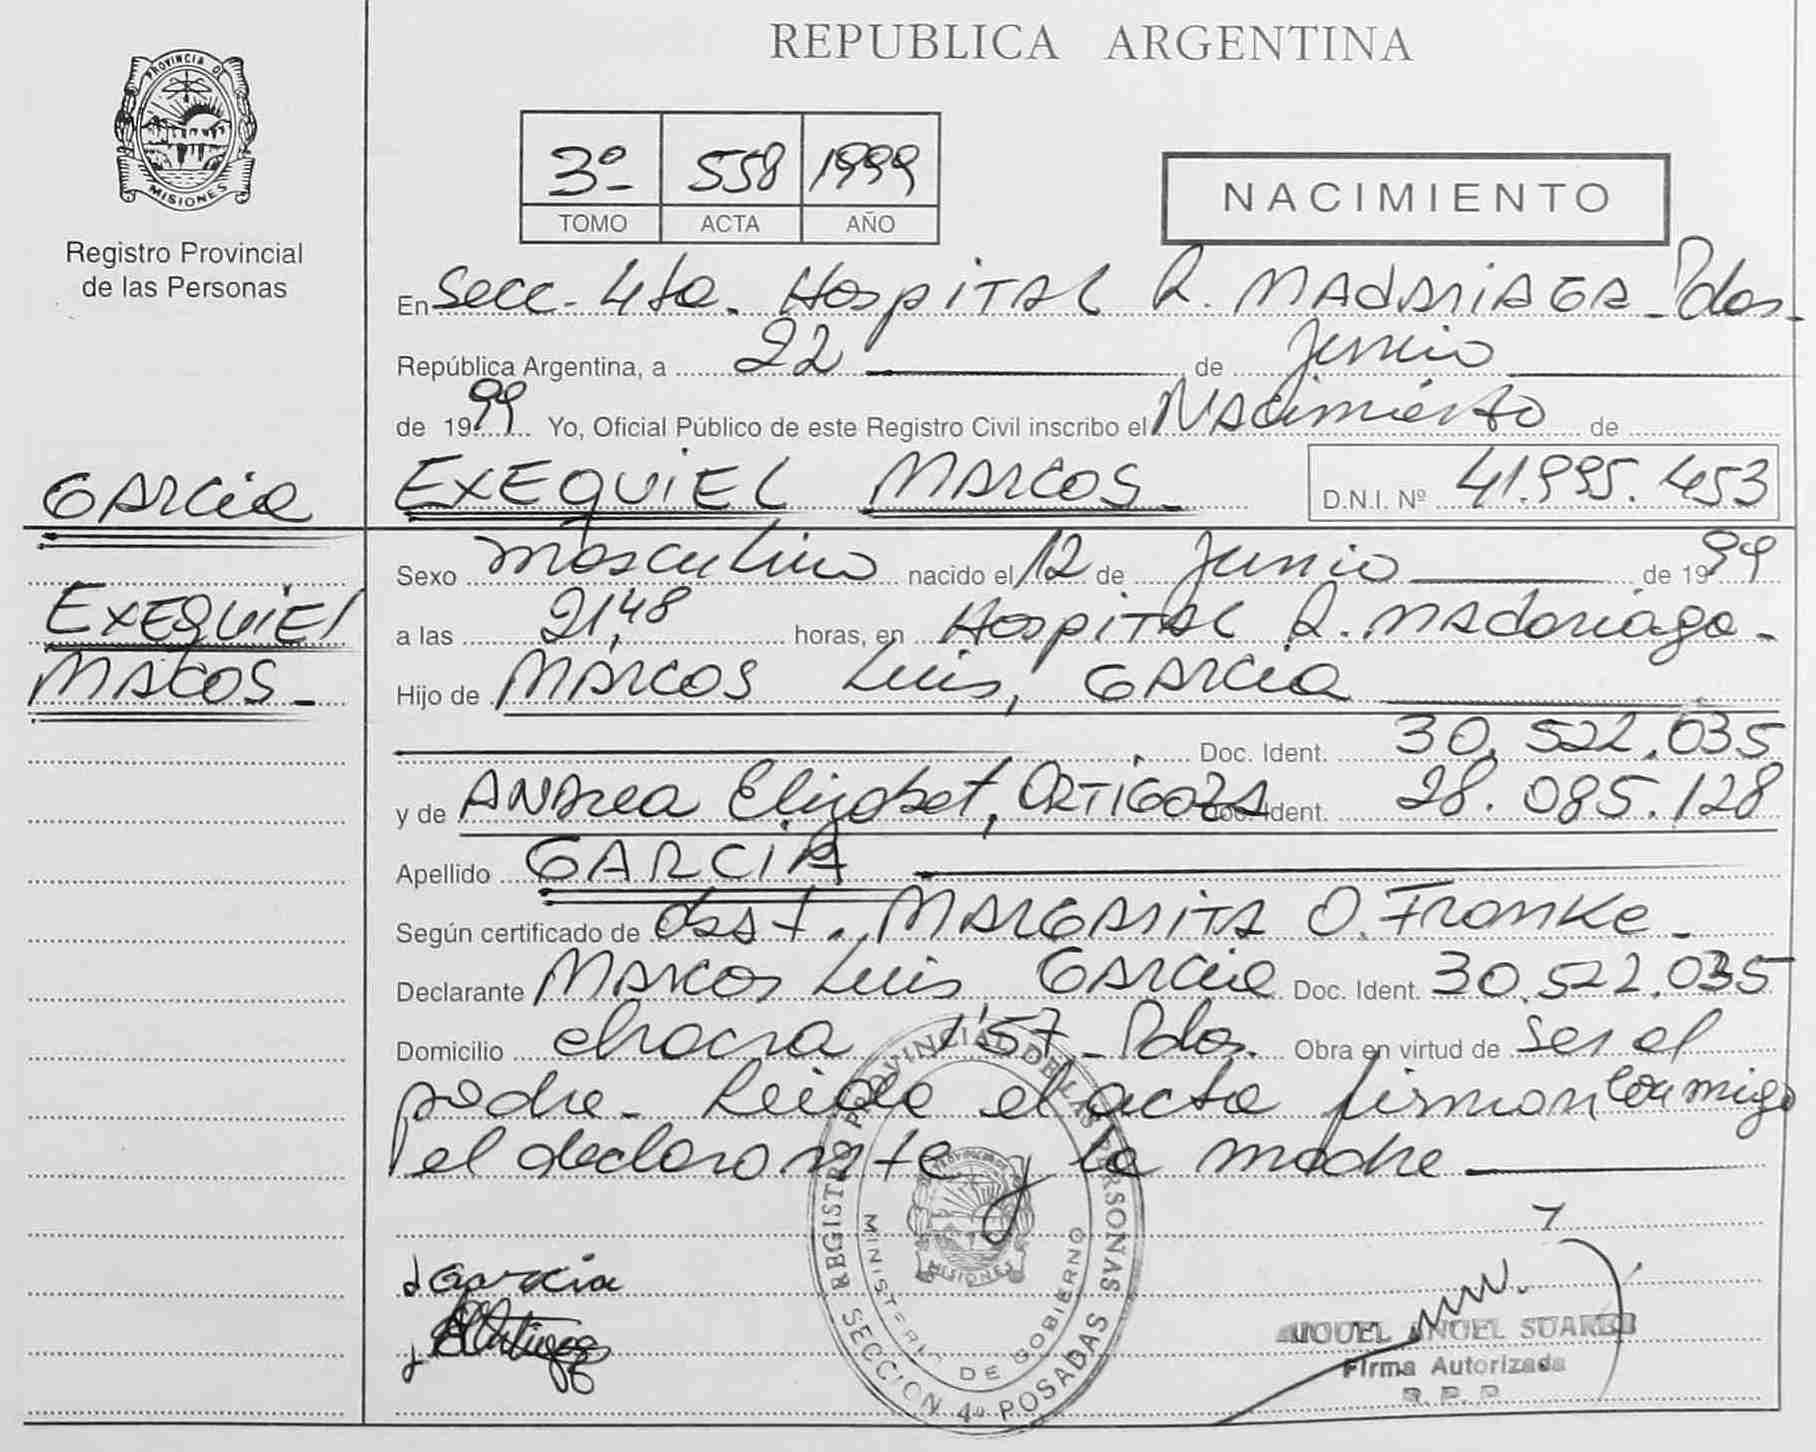 REPUBLICA ARGENTINA
PROVINCIA DE
MISIONES
Registro Provincial
de las Personas
3º 558 1999
TOMO ACTA AÑO
NACIMIENTO
En Secc. 4ta. Hospital R. MADARIAGA - Pdas.-
República Argentina, a 22 de Junio
de 1999 Yo, Oficial Público de este Registro Civil inscribo el Nacimiento de
GARCIA EXEQUIEL MARCOS - D.N.I. Nº 41.995.453
Sexo masculino nacido el 12 de Junio de 1999
EXEQUIEL
a las 21,48 horas, en Hospital R. Madariaga -
MACOS -
Hijo de MARCOS Luis, GARCIA
Doc. Ident. 30.522.035
y de ANDREA Elizabet, ORTIGOZA Doc. Ident. 28.085.128
Apellido GARCIA
Según certificado de Obst. MARGARITA O. Franke -
Declarante MARCOS Luis GARCIA Doc. Ident. 30.522.035
Domicilio chacra 157 - Pdas. Obra en virtud de ser el
padre - Leida el acta firman conmigo
el declarante y la madre
Garcia
REGISTRO PROVINCIAL DE LAS PERSONAS
MINISTERIO DE GOBIERNO
PROVINCIA DE
MISIONES
SECCION 4º POSADAS
MIGUEL ANGEL SUAREZ
Firma Autorizada
R. P. P.